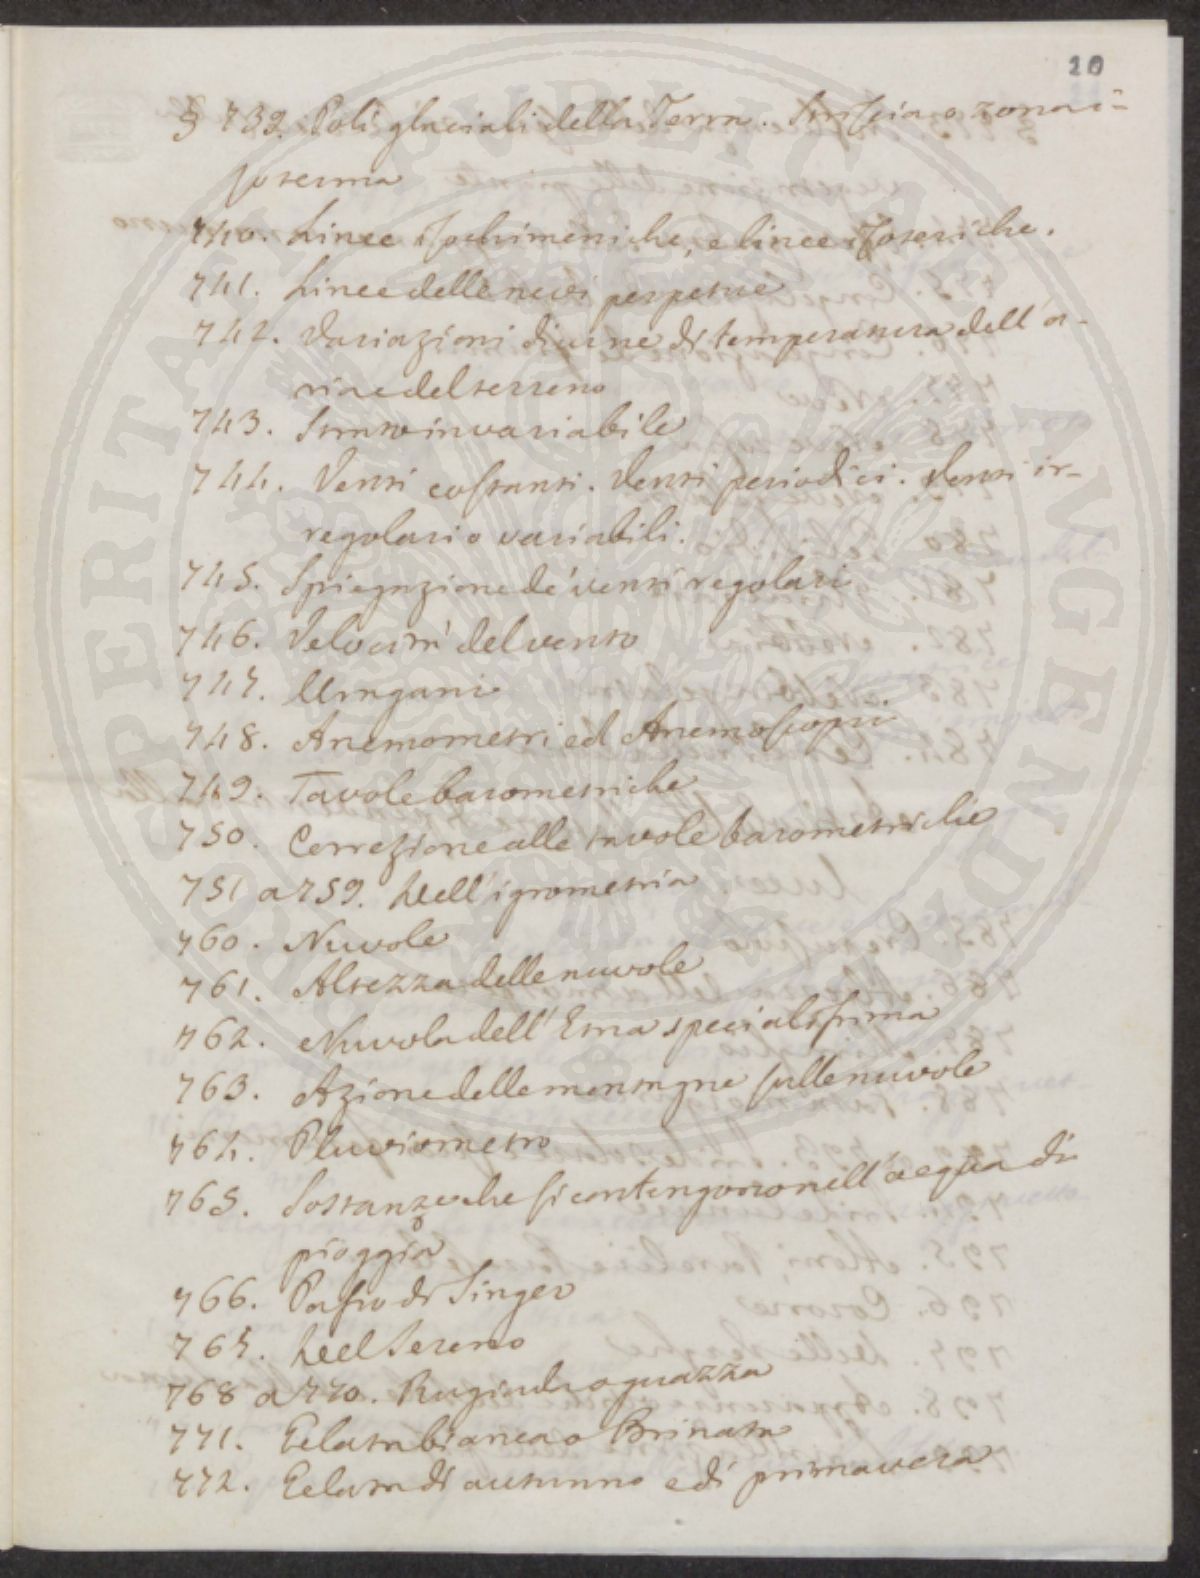 10
§ 739. Poli glaciali della Terra. Striscia o zona i-
soterma
740. Linee Isochimeniche, e linee Isoteriche.
741. Linee delle nevi perpetue
742. Variazioni diurne di temperatura dell'a-
ria e del terreno
743. Strato invariabile
744. Venti costanti. Venti periodici. Venti ir-
regolari o variabili.
745. Spiegazione de' venti regolari
746. Velocità del vento
747. Uragani
748. Anemometri ed Anemoscopii
749. Tavole barometriche
750. Correzione alle tavole barometriche
751 a 759. Dell'igrometria
760. Nuvole
761. Altezza delle nuvole
762. Nuvola dell'Etna specialissima
763. Azione delle montagne sulle nuvole
764. Pluviometro
765. Sostanze che si contengono nell'acqua di
pioggia
766. Passo di Singer
767. Del Sereno
768 a 770. Rugiada o guazza
771. Gelata bianca o Brinata
772. Gelata di autunno e di primavera
PROSPERITATI PUBLICAE AUGENDAE